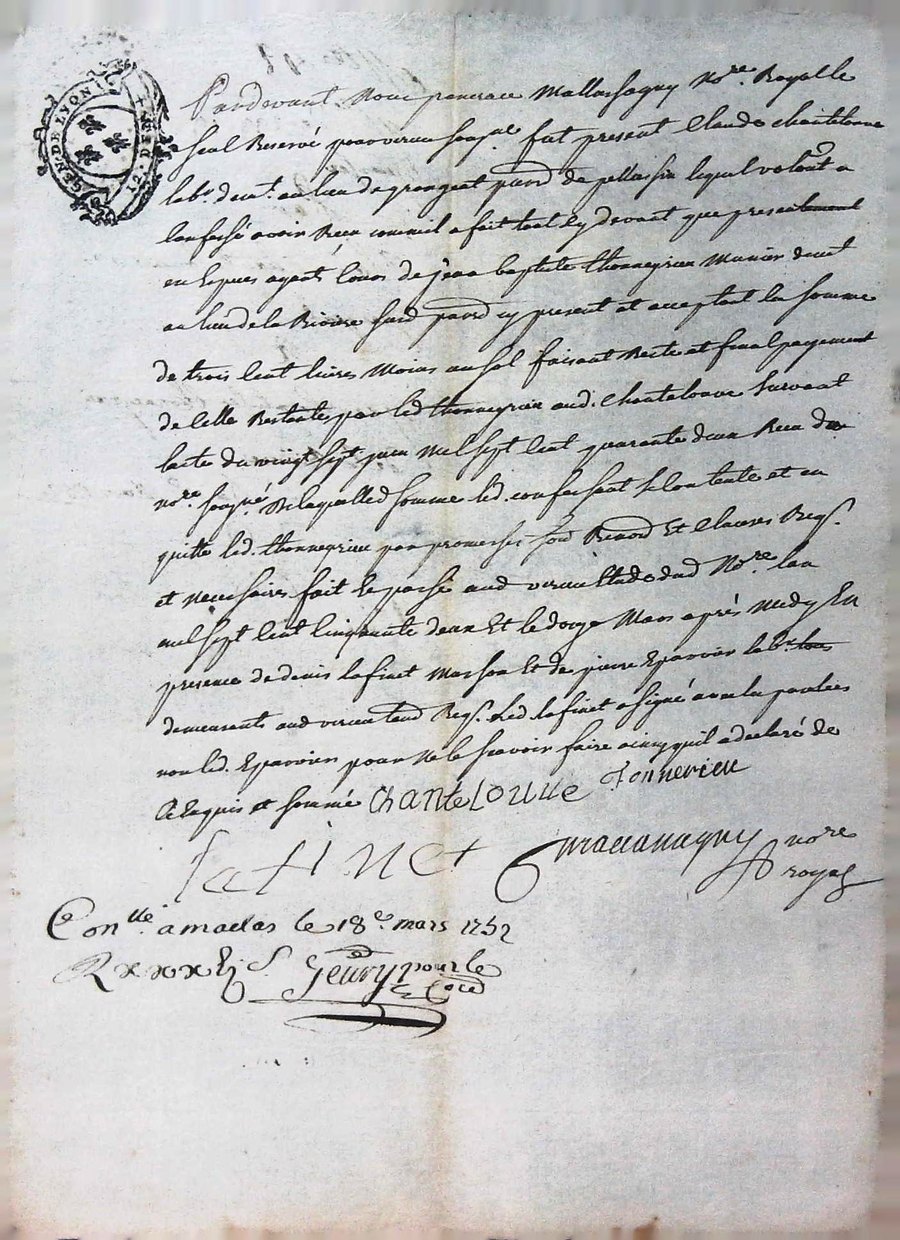 GEN. DE LYON
12. DEN.
Pardevant Nous pancrace Mallassagny No.re Royalle
seul Reservé pour virieu soug.né fut present Claude chantelouve
lab.r deme.t au lieu de grangeat parr.d de pellussin lequel volont.
confessé avoir Receu comme il a fait tant cy devant que presentement
en Espuces ayant Cours de jean baptiste thonneyrieu Munier deme.t
au lieu de la Riviere sud. parr.d cy present et acceptant la somme
de trois cent livres Moins un sol faisant Reste et final payement
de Celle Restante par led. thonneyrieu aud. Chantelouve suivant
lacte du vingt sept juin Mil sept cent quarante deux Receu du
no.re sougné De laquelle d. somme led. confessant se Contente et en
quitte led. thonneyrieu par promesses Renond Et Clauses Reqs.
et necessaires fait Et passé aud virieu Etude dud No.re lan
mil sept cent cinquante deux Et le douze Mars après Midy En
presence de denis lafinet Masson Et de pierre Eparvier lab.r
demeurants aud virieu Reqs. Led. lafinet a signé avec les parties
non led. Eparvier pour Ne le sçavoir faire ainsy quil a declaré de
Ce Requis et sommé Chantelouve Tonnerieu
lafinet Mallassagny no.re
royal
Con.lle a maclas le 18.e mars 1752
R Geury pour le